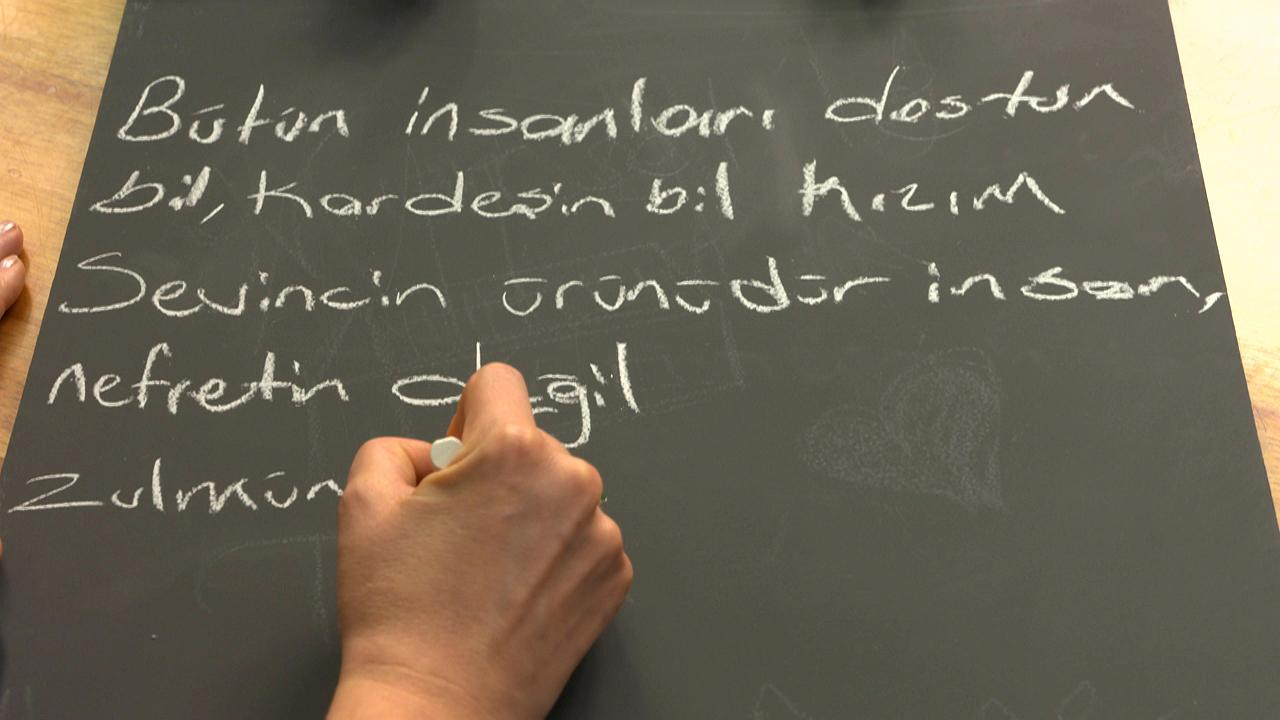 Bütün insanları dostun
bil, kardeşin bil kızım
Sevincin ürünüdür insan,
nefretin değil
Zulmün